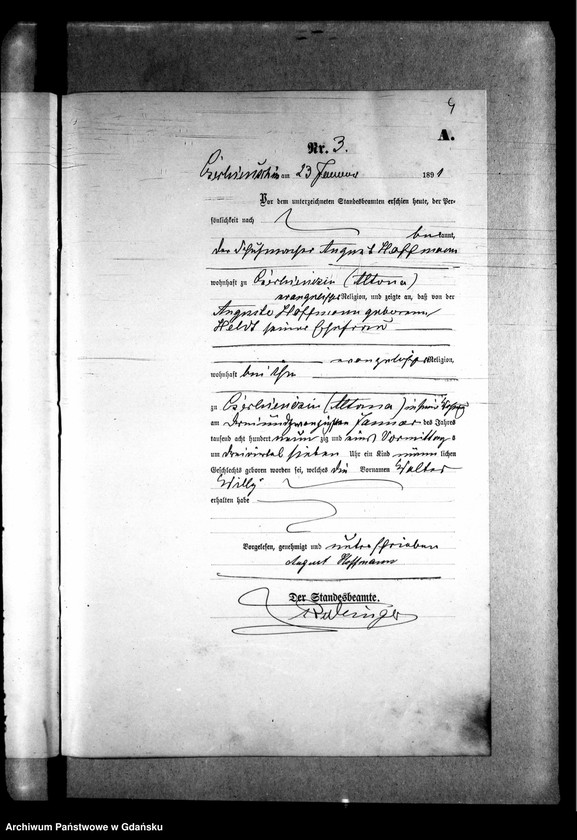 9
A.
Nr. 3.
am 23 Januar 1891
Vor dem unterzeichneten Standesbeamten erschien heute, der Per-
sönlichkeit nach
bekannt,
der Schuhmacher August Hoffmann
wohnhaft zu (Altona)
evangelischer Religion, und zeigte an, daß von der
Auguste Hoffmann geborenen
Heldt seiner Ehefrau
evangelischer Religion,
wohnhaft bei ihm
zu (Altona) in seiner Wohnung
am dreiundzwanzigsten Januar des Jahres
tausend acht hundert neunzig und eins Vormittags
um dreiviertel sieben Uhr ein Kind männlichen
Geschlechts geboren worden sei, welches die Vornamen Walter
Willy
erhalten habe
Vorgelesen, genehmigt und unterschrieben
August Hoffmann
Der Standesbeamte.
Archiwum Państwowe w Gdańsku